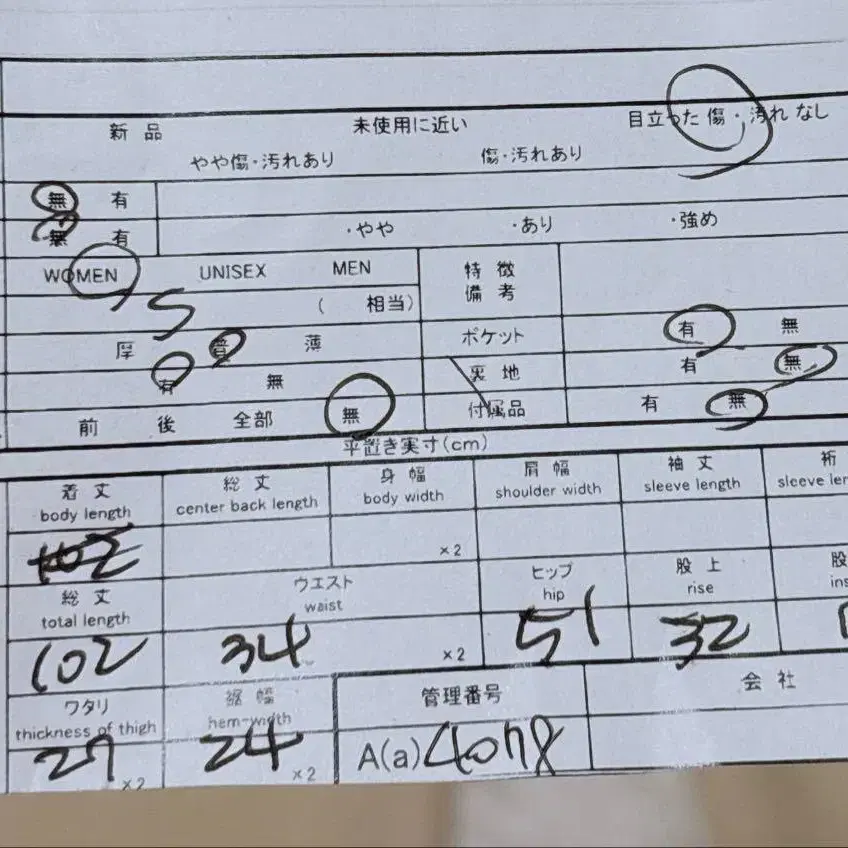 新品 未使用に近い 目立った傷・汚れなし
やや傷・汚れあり 傷・汚れあり
無 有
無 有 ・やや ・あり ・強め
WOMEN UNISEX MEN 特徴
備考
S ( 相当)
厚 普 薄 ポケット 有 無
有 無 裏地 有 無
前 後 全部 無 付属品 有 無
平置き実寸(cm)
着丈 総丈 身幅 肩幅 袖丈 裄
body length center back length body width shoulder width sleeve length sleeve len
102 ×2
総丈 ウエスト ヒップ 股上 股
total length waist hip rise ins
102 34 ×2 51 32
ワタリ 裾幅 管理番号 会社
thickness of thigh hem-width
27 ×2 24 ×2 A(a)